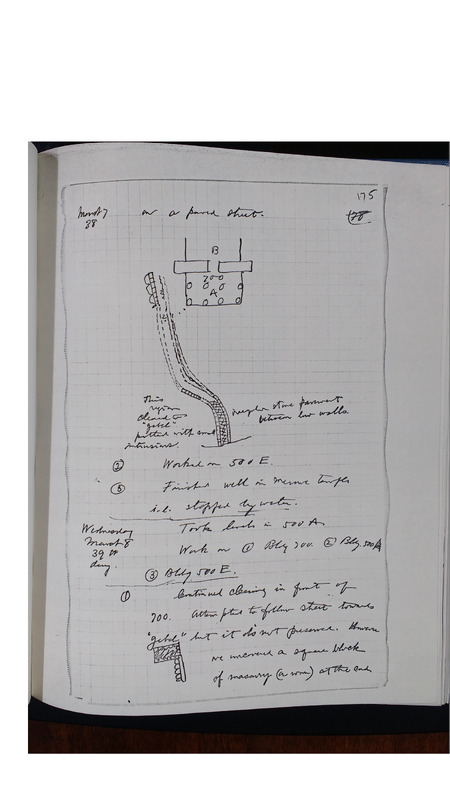 175
March 7
38
on a paved street.
B
700
A
This
region
cleared to
"gebel"
pitted with small
intrusions.
irregular stone pavement
between low walls
② Worked on 500 E.
③ Finished well in Meroe temple
i.e. stopped by water.
Wednesday
March 8
39th
day.
Took levels in 500 A
Work on ① Bldg 700. ② Bldg. 500 A
③ Bldg 500 E.
① Continued clearing in front of
700. Attempted to follow street towards
"gebel" but it is not preserved. However
we uncovered a square block
of masonry (a room) at the end